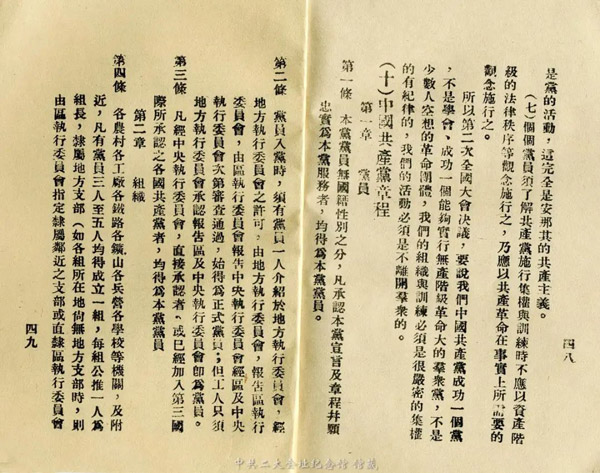 是黨的活動，這完全是安那其的共產主義。
(七)個個黨員須了解共產黨施行集權與訓練時不應以資產階
級的法律秩序等觀念施行之，乃應以共產革命在事實上所需要的
觀念施行之。
所以第二次全國大會決議，要說我們中國共產黨成功一個黨
，不是學會，成功一個能夠實行無產階級革命大的羣衆黨，不是
少數人空想的革命團體，我們的組織與訓練必須是很嚴密的集權
的有紀律的，我們的活動必須是不離開羣衆的。
(十)中國共產黨章程
第一章　黨員
第一條　本黨黨員無國籍性別之分，凡承認本黨宣言及章程幷願
忠實爲本黨服務者，均得爲本黨黨員。
四八
第二條　黨員入黨時，須有黨員一人介紹於地方執行委員會，經
地方執行委員會之許可，由地方執行委員會，報告區執行
委員會，由區執行委員會報告中央執行委員會經區及中央
執行委員會次第審查通過，始得爲正式黨員；但工人只須
地方執行委員會承認報告區及中央執行委員會卽爲黨員。
第三條　凡經中央執行委員會，直接承認者，或已經加入第三國
際所承認之各國共產黨者，均得爲本黨黨員
第二章　組織
第四條　各農村各工廠各鐵路各鑛山各兵營各學校等機關，及附
近，凡有黨員三人至五人均得成立一組，每組公推一人爲
組長，隸屬地方支部（如各組所在地尙無地方支部時，則
由區執行委員會指定隸屬鄰近之支部或直隸區執行委員會
四九
中共二大会址纪念馆 馆藏